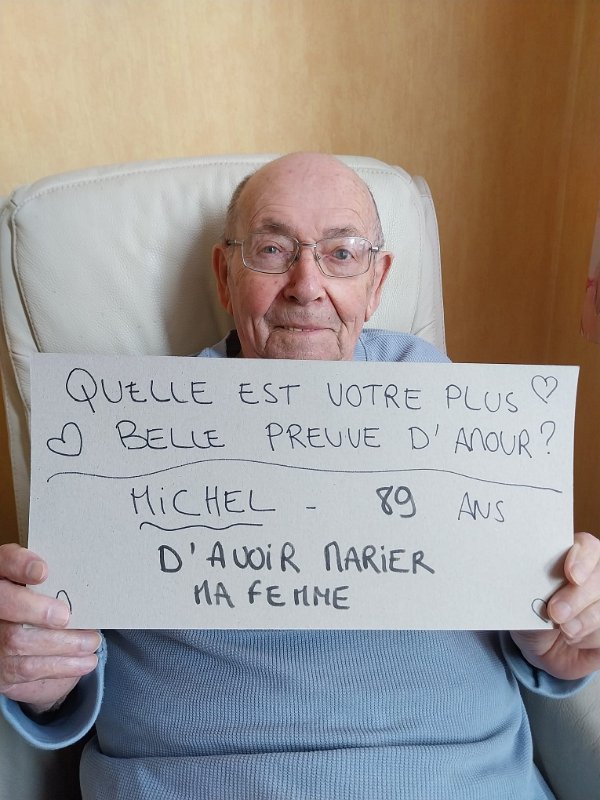 QUELLE EST VOTRE PLUS
BELLE PREUVE D'AMOUR?
MiCHEL - 89 ANS
D'AVOIR MARiER
MA FEMME